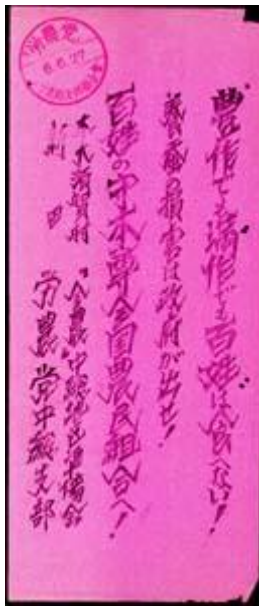 豊作でも満作でも百姓は食へない!
養蚕の損害は政府が出せ!
百姓の中本尊全国農民組合へ!
大木須賀村
全農中総地区準備会
労農党中総支部
6.6.27